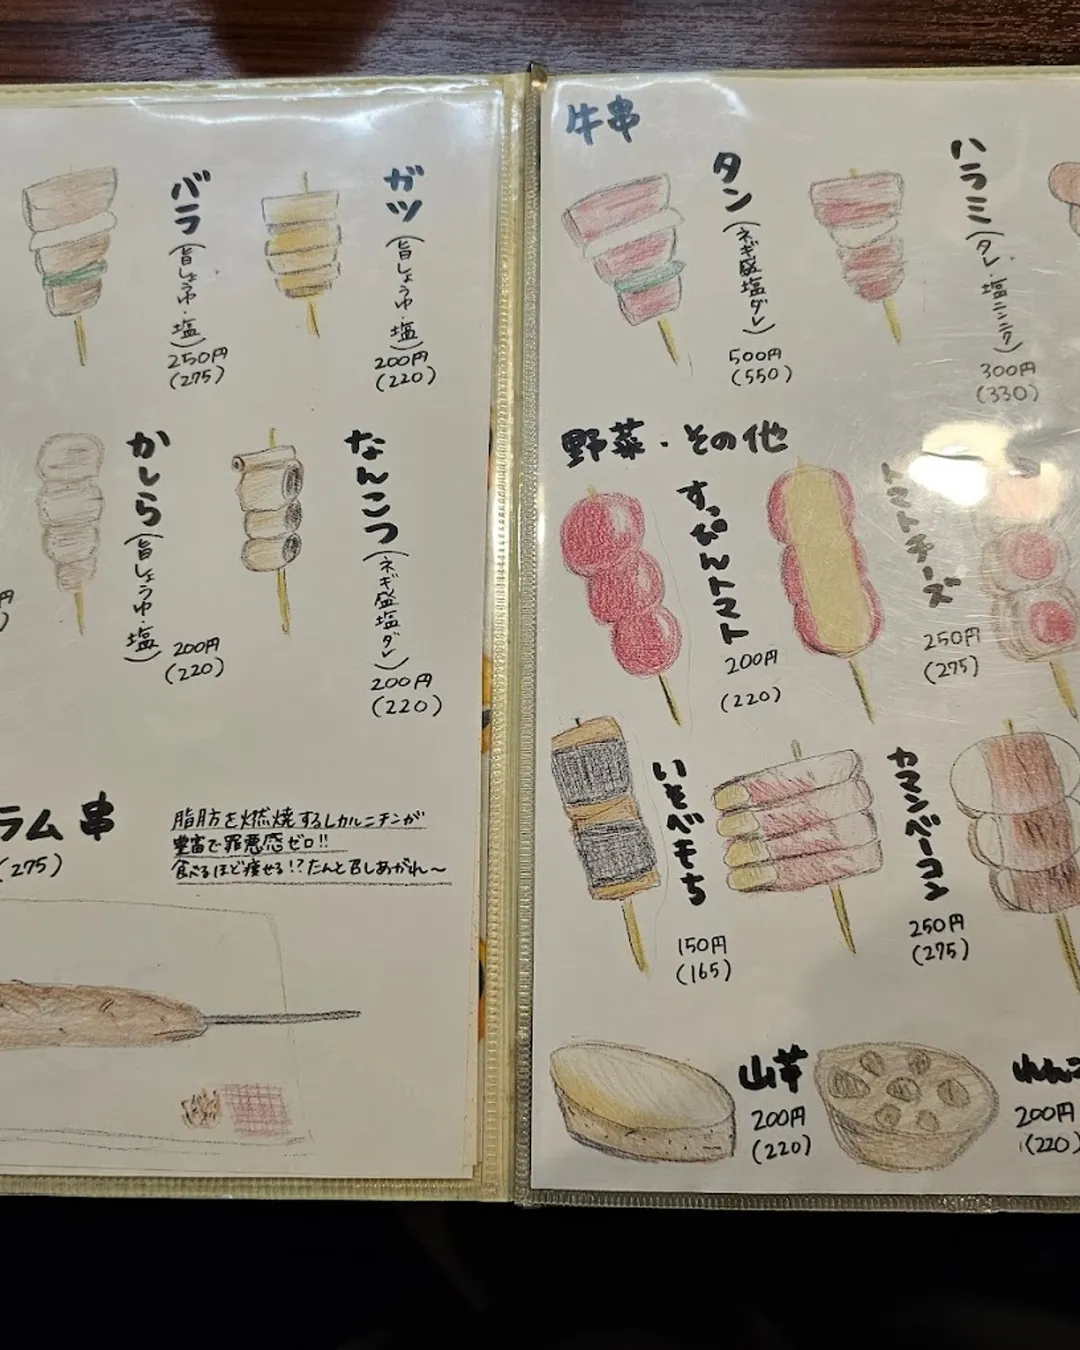 バラ(旨しょうゆ・塩)
250円
(275)
ガツ(旨しょうゆ・塩)
200円
(220)
かしら(旨しょうゆ・塩)
200円
(220)
なんこつ(ネギ盛塩ダレ)
200円
(220)
円
ラム串
(275)
脂肪を燃焼するLカルニチンが
豊富で罪悪感ゼロ!!
食べるほど痩せる!?たんと召しあがれ〜
牛串
タン(ネギ盛塩ダレ)
500円
(550)
ハラミ(タレ・塩ニンニク)
300円
(330)
野菜・その他
すっぴんトマト
200円
(220)
トマトチーズ
250円
(275)
いそべもち
150円
(165)
カマンベーコン
250円
(275)
山芋
200円
(220)
れんこ
200円
(220)